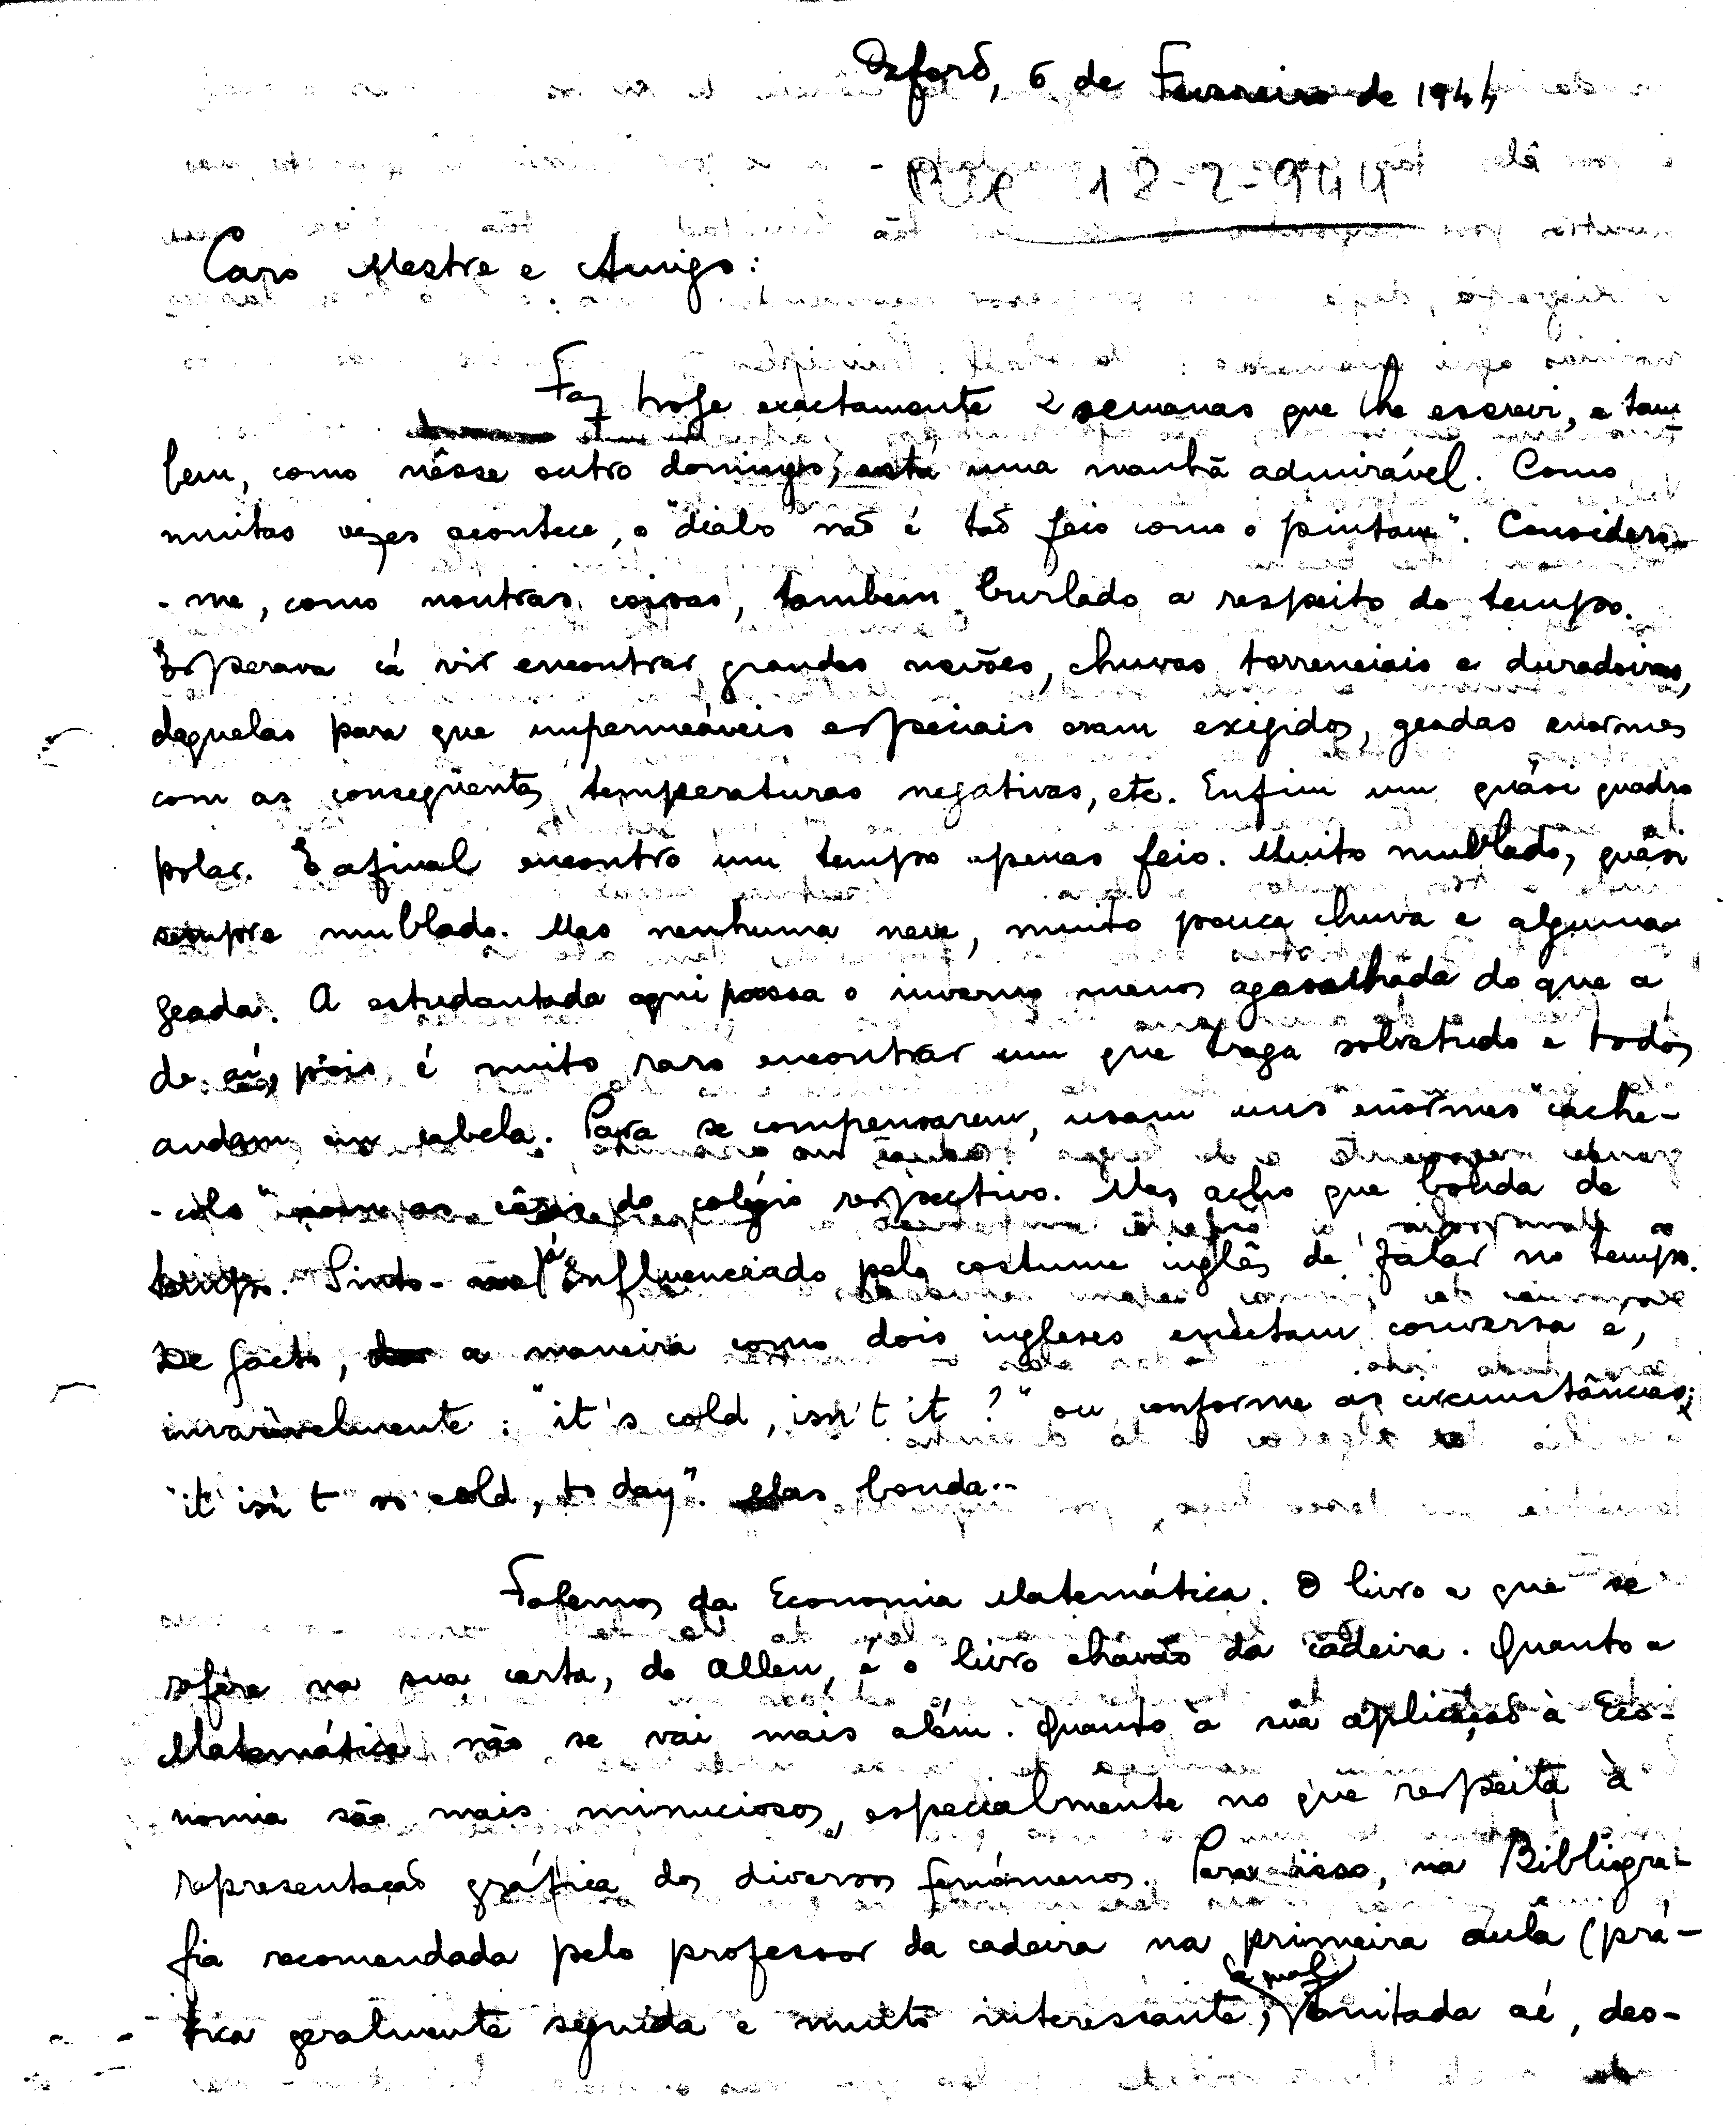 Oxford, 6 de Fevereiro de 1944
Rec 18-2-944
Caro Mestre e Amigo:
Faz hoje exactamente 2 semanas que lhe escrevi, e tam
bem, como nêsse outro domingo, está uma manhã admirável. Como
muitas vezes acontece, o "diabo não é tão feio como o pintam". Considero-
-me, como noutras coisas, tambem burlado a respeito do tempo.
Esperava cá vir encontrar grandes nevões, chuvas torrenciais e duradoiras,
daquelas para que impermeáveis especiais eram exigidos, geadas enormes
com as conseqüentes temperaturas negativas, etc. Enfim um quási quadro
polar. E afinal encontro um tempo apenas feio. Muito nublado, quási
sempre nublado. Mas nenhuma neve, muito pouca chuva e alguma
geada. A estudantada aqui passa o inverno menos agasalhada do que a
de aí, pois é muito raro encontrar um que traga sobretudo e todos
andam em cabelo. Para se compensarem, usam uns enormes "cache-
-cols" com as côres do colégio respectivo. Mas acho que bonda de
tempo. Sinto-me já influenciado pelo costume inglês de falar no tempo.
De facto, a maneira como dois ingleses encetam conversa é,
invariavelmente: "it's cold, isn't it?" ou conforme as circunstâncias:
"it isn't so cold, to day". Mas bonda...
Falemos da Economia Matemática. O livro a que se
refere na sua carta, do Allen, é o livro chavão da cadeira. Quanto a
Matemática não se vai mais além. Quanto à sua aplicação à Eco-
nomia são mais minuciosos, especialmente no que respeita à
representação gráfica dos diversos fenómenos. Para isso, na Bibliogra-
fia recomendada pelo professor da cadeira na primeira aula (prá-
tica geralmente seguida e muito interessante, e mal imitada aí, des-